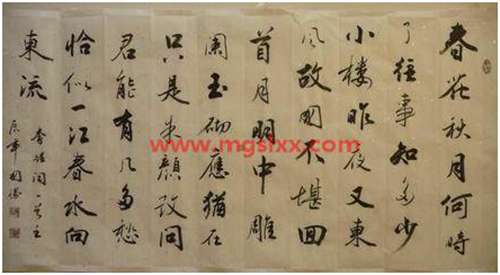 春花秋月何時
了往事知多少
小樓昨夜又東
風故國不堪回
首月明中雕
闌玉砌應猶在
只是朱顏改問
君能有几多愁
恰似一江春水向
東流
李煜詞
www.mgslxx.com